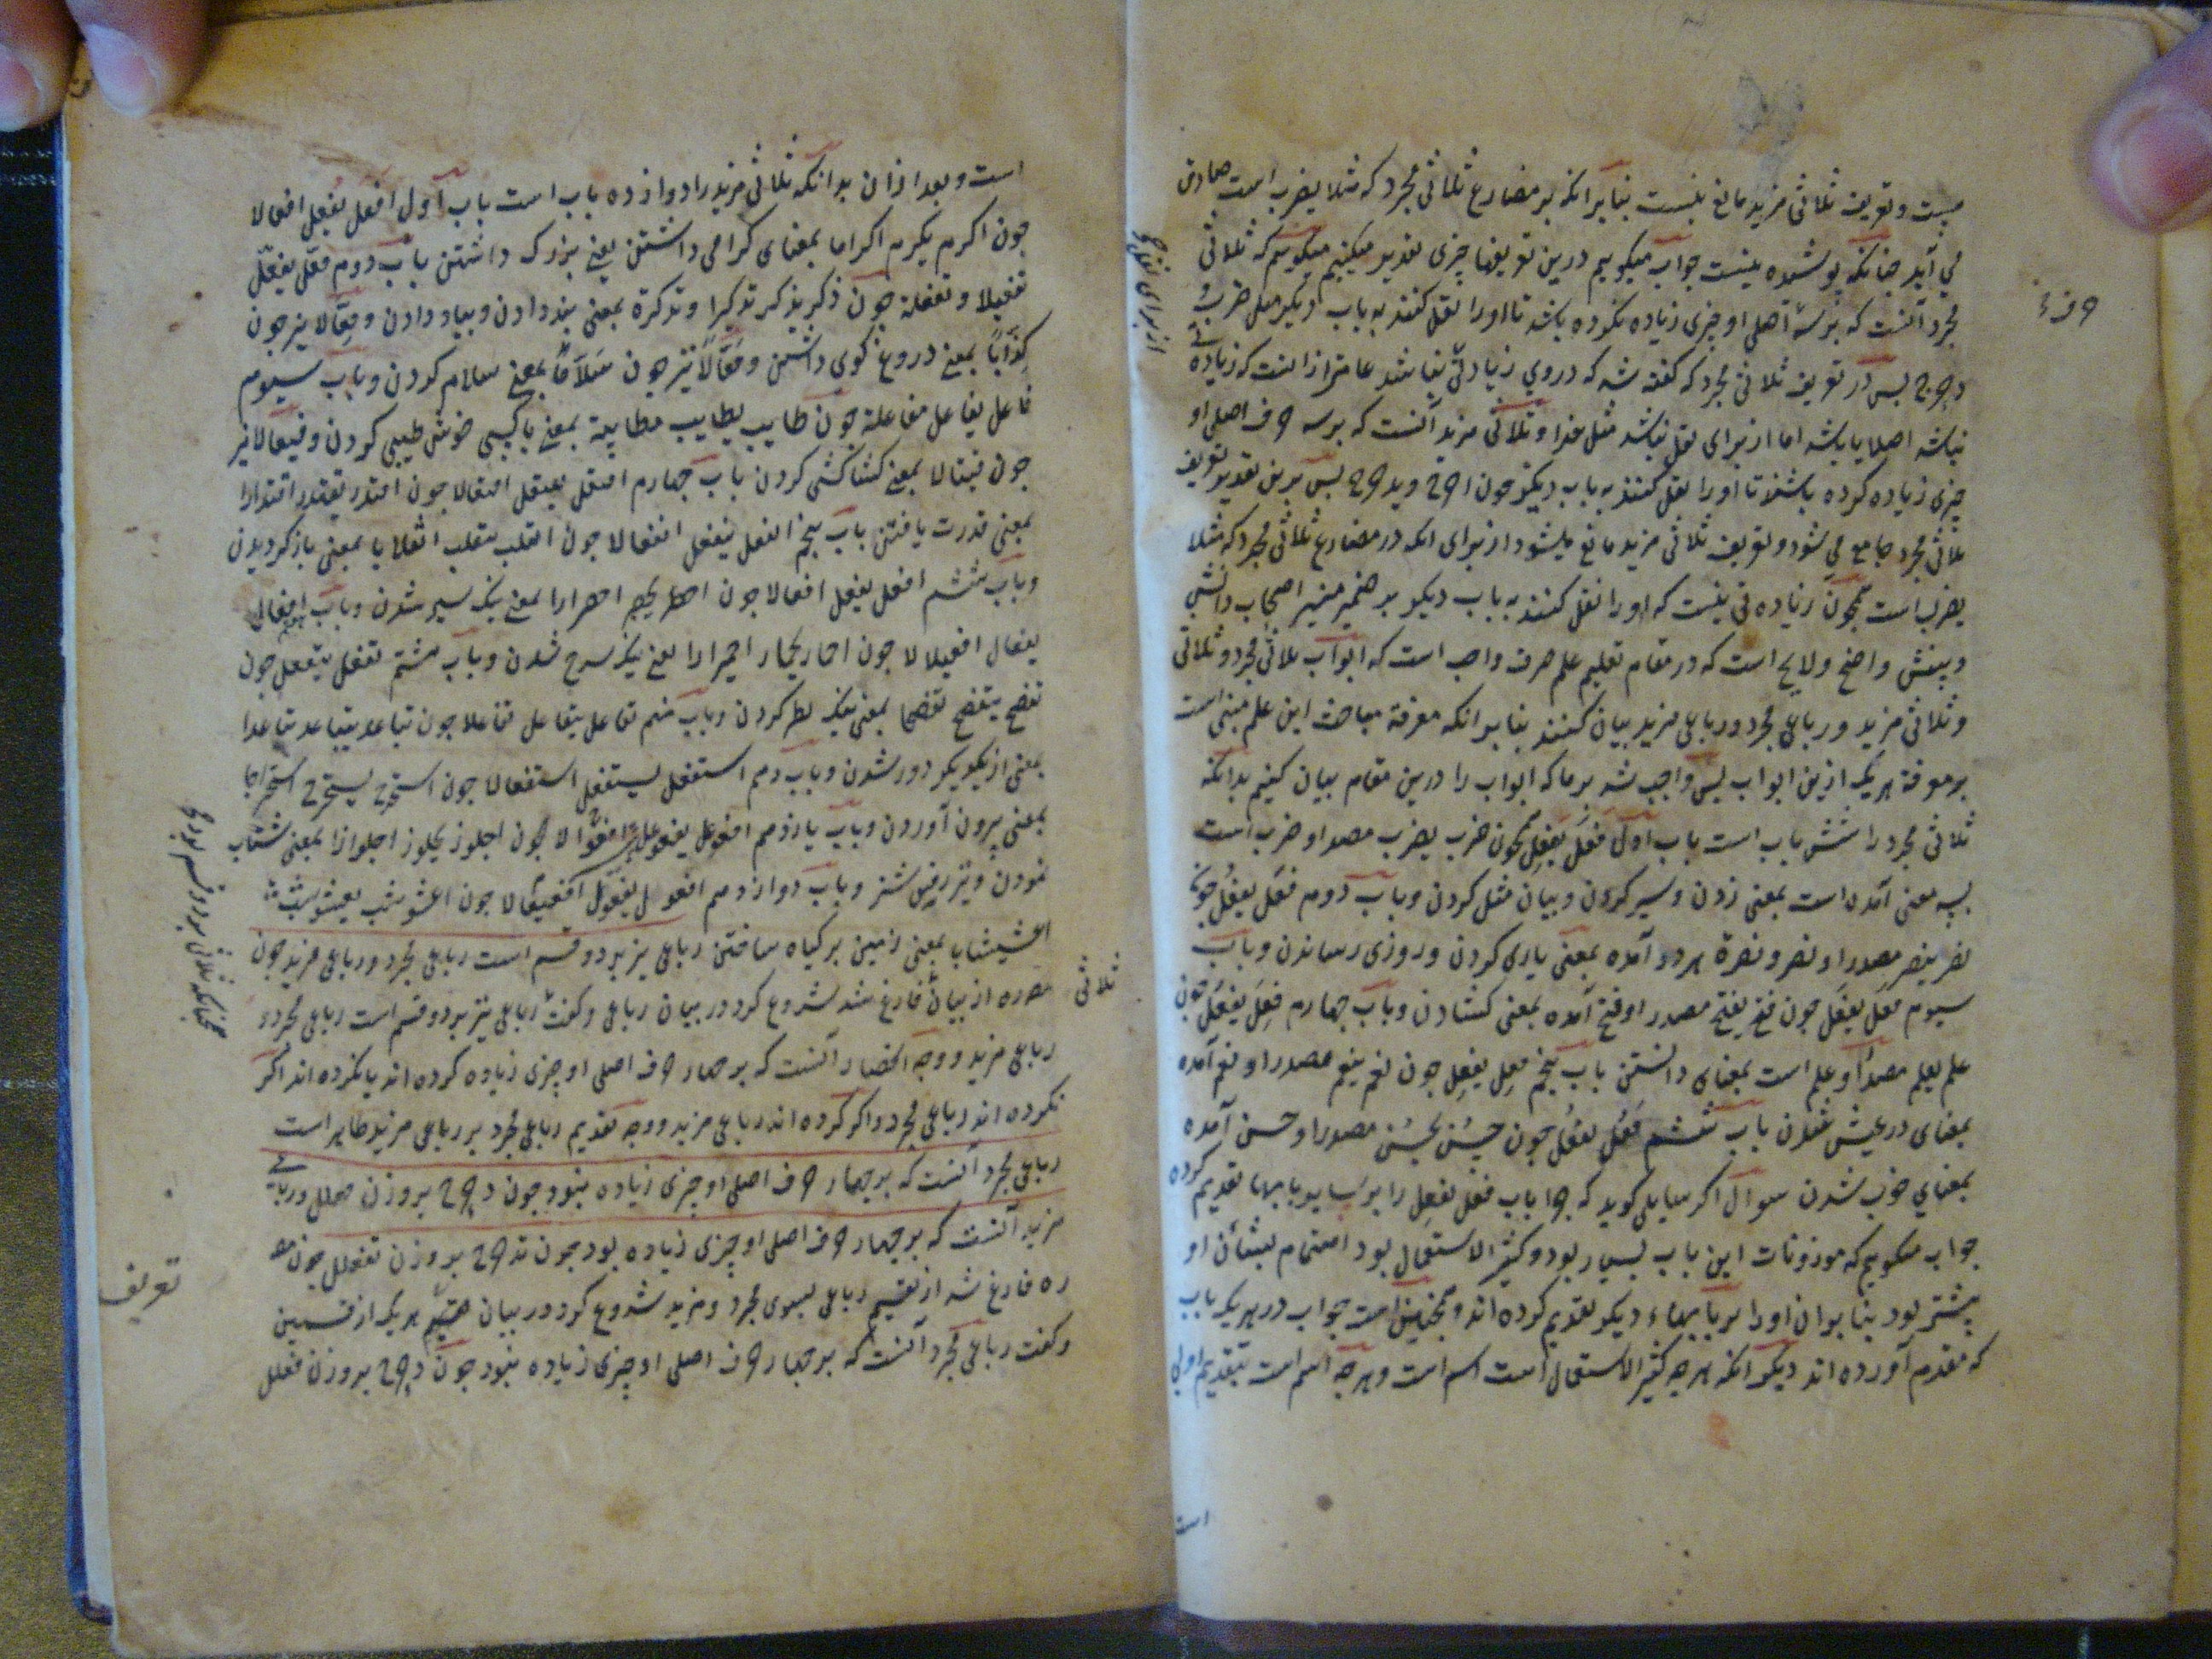 نیست و تعریف ثلاثی مزید مانع نیست بنابر انکه بر مضارع ثلاثی مجرد که مثلا یضرب است صادق
می آید چنانکه پوشیده نیست جواب میکوییم درین تعریفها چیزی تقدیر میکنیم میکوییم که ثلاثی
مجرد آنست که بر سه اصلی او چیزی زیاده نکرده باشد تا اورا نقل کنند به باب دیکر مثل ضرب و
دحرج پس در تعریف ثلاثی مجرد که کفته شد که دروی زیادتی نباشد عامتر از انست که زیاده
نباشد اصلا یا باشد اما از برای نقل نباشد مثل عذا و ثلاثی مزید آنست که بر سه حرف اصلی او
چیزی زیاده کرده باشند تا اورا نقل کنند به باب دیکر چون اخرج و یدحرج پس برین تقدیر تعریف
ثلاثی مجرد جامع می شود و تعریف ثلاثی مزید مانع میشود از برای انکه در مضارع ثلاثی مجرد که مثلا
یضرب است همچون زیاده تی نیست که اورا نقل کنند به باب دیکر بر ضمیر منیر اصحاب دانش
و بینش واضح و لایح است که در مقام تعلیم علم صرف واجب است که ابواب ثلاثی مجرد و ثلاثی
و ثلاثی مزید و رباعی مجرد و رباعی مزید بیان کنند بنابر انکه معرفة مباحث این علم مبنی است
بر معرفة هریک ازین ابواب پس واجب شد بر ما که ابواب را درین مقام بیان کنیم بدانکه
ثلاثی مجرد را شش باب است باب اول فَعَلَ یَفعِل همچون ضرب یضرب مصدر او ضرب است
بسه معنی آمده است بمعنی زدن و سیر کردن و بیان مثل کردن و باب دوم فعَل یفعُل چون
نصر ینصر مصدر او نصر و نصرة هر دو آمده بمعنی یاری کردن و روزی رساندن و باب
سیوم فعَل یفعَل چون فتح یفتح مصدر او فتح آمده بمعنی کشادن و باب چهارم فعِل یفعَل چون
علم یعلم مصدر او علم است بمعنای دانستن باب پنجم فعِل یفعِل چون نعم ینعم مصدر او نعم آمده
بمعنای در عیش شدن باب ششم فعُل یفعُل چون حسُن یحسُن مصدر او حسن آمده
بمعنای خوب شدن سوال اکر سایلی کوید که چرا باب فعَل یفعِل را بر سایر بابها تقدیم کرده
جواب میکوییم که موزونات این باب بسیار بود و کثیر الاستعمال بود اهتمام بشأن او
بیشتر بود بنابر ان اورا بر بابهاء دیکر تقدیم کرده اند و همچنین است جواب در هریک باب
که مقدم آورده اند دیکر انکه هرچه کثیر الاستعمال است اسم است و هرچه اسم است بتقدیم اولی
است
حرف
است و بعد از ان بدانکه ثلاثی مزید را دوازده باب است باب اول افعل یفعل افعالا
چون اکرم یکرم اکراما بمعنای کرامی داشتن یعنی بزرک داشتن باب دوم فعّل یفعّل
تفعیلا و تفعلة چون ذکر یذکر تذکیرا و تذکرة بمعنی پند دادن و بیاد دادن و فِعّالا نیز چون
کِذّاباً بمعنی دروغ کوی داشتن و فَعَالاً نیز چون سَلاَماً بمعنی سلام کردن و باب سیوم
فاعل یفاعل مفاعلة چون طایب یطایب مطایبة بمعنی با کسی خوش طیبی کردن و فیعالا نیز
چون قیتالا بمعنی کشاکشی کردن باب چهارم افتعل یفتعل افتعالا چون اقتدر یقتدر اقتدارا
بمعنی قدرت یافتن باب پنجم انفعل ینفعل انفعالا چون انقلب ینقلب انقلابا بمعنی باز کردیدن
و باب ششم افعل یفعل افعلالا چون احمر یحمر احمرارا بمعنی نیک سرخ شدن و باب هفتم افعال
یفعال افعیلالا چون احمار یحمار احمیرارا یعنی نیک سرخ شدن و باب هشتم تفعل یتفعل چون
تفضح یتفضح تفضحا بمعنی نیک نظر کردن و باب نهم تفاعل یتفاعل تفاعلا چون تباعد یتباعد تباعدا
بمعنی از یکدیکر دور شدن و باب دهم استفعل یستفعل استفعالا چون استخرج یستخرج استخراجا
بمعنی بیرون آوردن و باب یازدهم افعول یفعول افعوّالا چون اجلوز یجلوز اجلوازا بمعنی شتاب
نمودن و تیز رفتن شتر و باب دوازدهم افعوعل یفعوعل افعیعالا چون اعشوشب یعشوشب
اعشیشابا بمعنی زمین پر کیاه ساختن رباعی نیز بر دو قسم است رباعی مجرد و رباعی مزید چون
مصره از بیان فارغ شد شروع کرد در بیان رباعی و کفت رباعی نیز بر دو قسم است رباعی مجرد و
رباعی مزید و وجه انحصار آنست که بر چهار حرف اصلی او چیزی زیاده کرده اند یا نکرده اند اکر
نکرده اند رباعی مجرد و اکر کرده اند رباعی مزید و وجه تقدیم رباعی مجرد بر رباعی مزید ظاهر است
رباعی مجرد آنست که بر چهار حرف اصلی او چیزی زیاده نبود چون دحرج بر وزن فعلل و رباعی
مزید آنست که بر چهار حرف اصلی او چیزی زیاده بود چون تدحرج بر وزن تفعلل چون مصـ
ره فارغ شد از تقسیم رباعی بسوی مجرد و مزید شروع کرد در بیان هریک از قسمین
و کفت رباعی مجرد آنست که بر چهار حرف اصلی او چیزی زیاده نبود چون دحرج بر وزن فعلل
ثلاثی
چنانکه ثلاثی بر دو قسم بود
تعریف